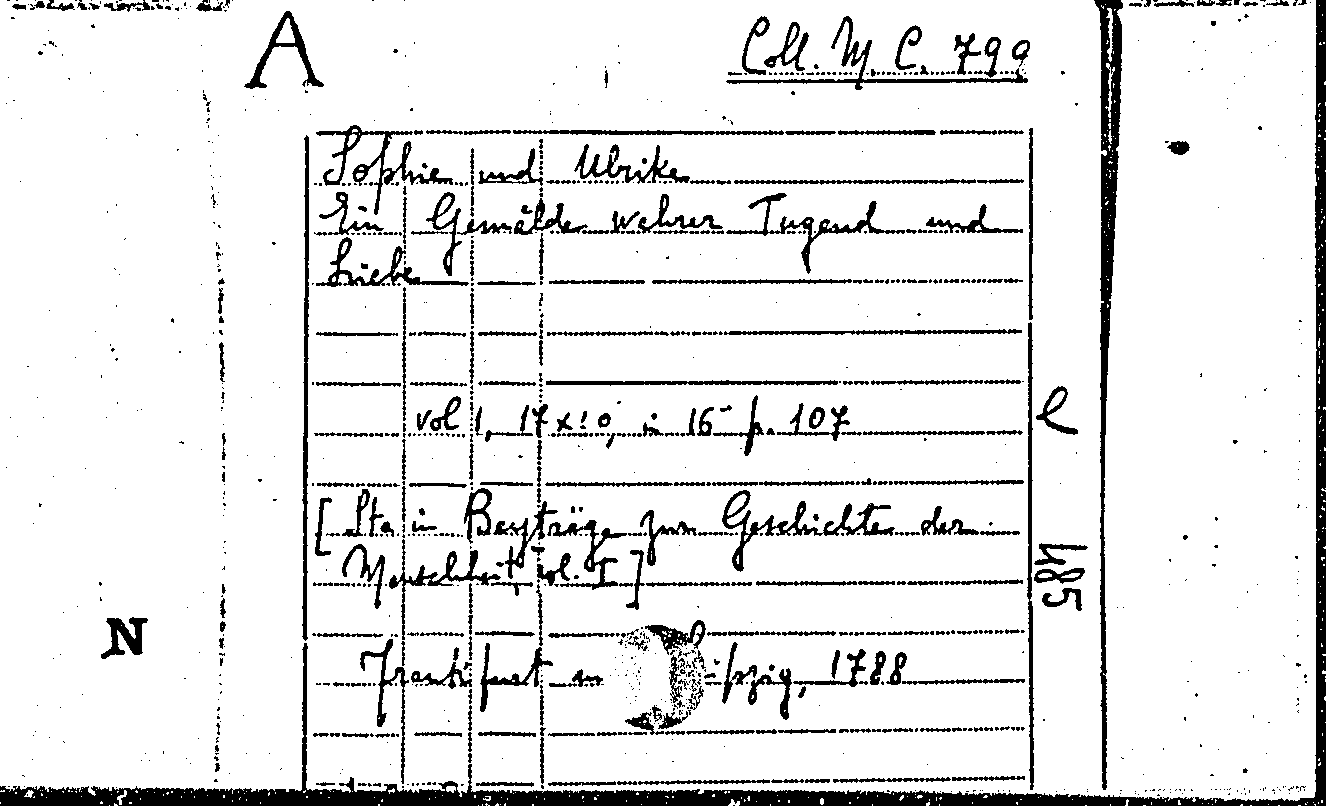 A
Coll. M. C. 799
Sophie und Ulrike
Ein Gemälde wahrer Tugend und
Liebe
vol 1, 17 x 10, in 16° p. 107
l
[Sta in Beyträge zur Geschichte der
Menschheit, vol. I]
485
N
Frankfurt un ipzig, 1788